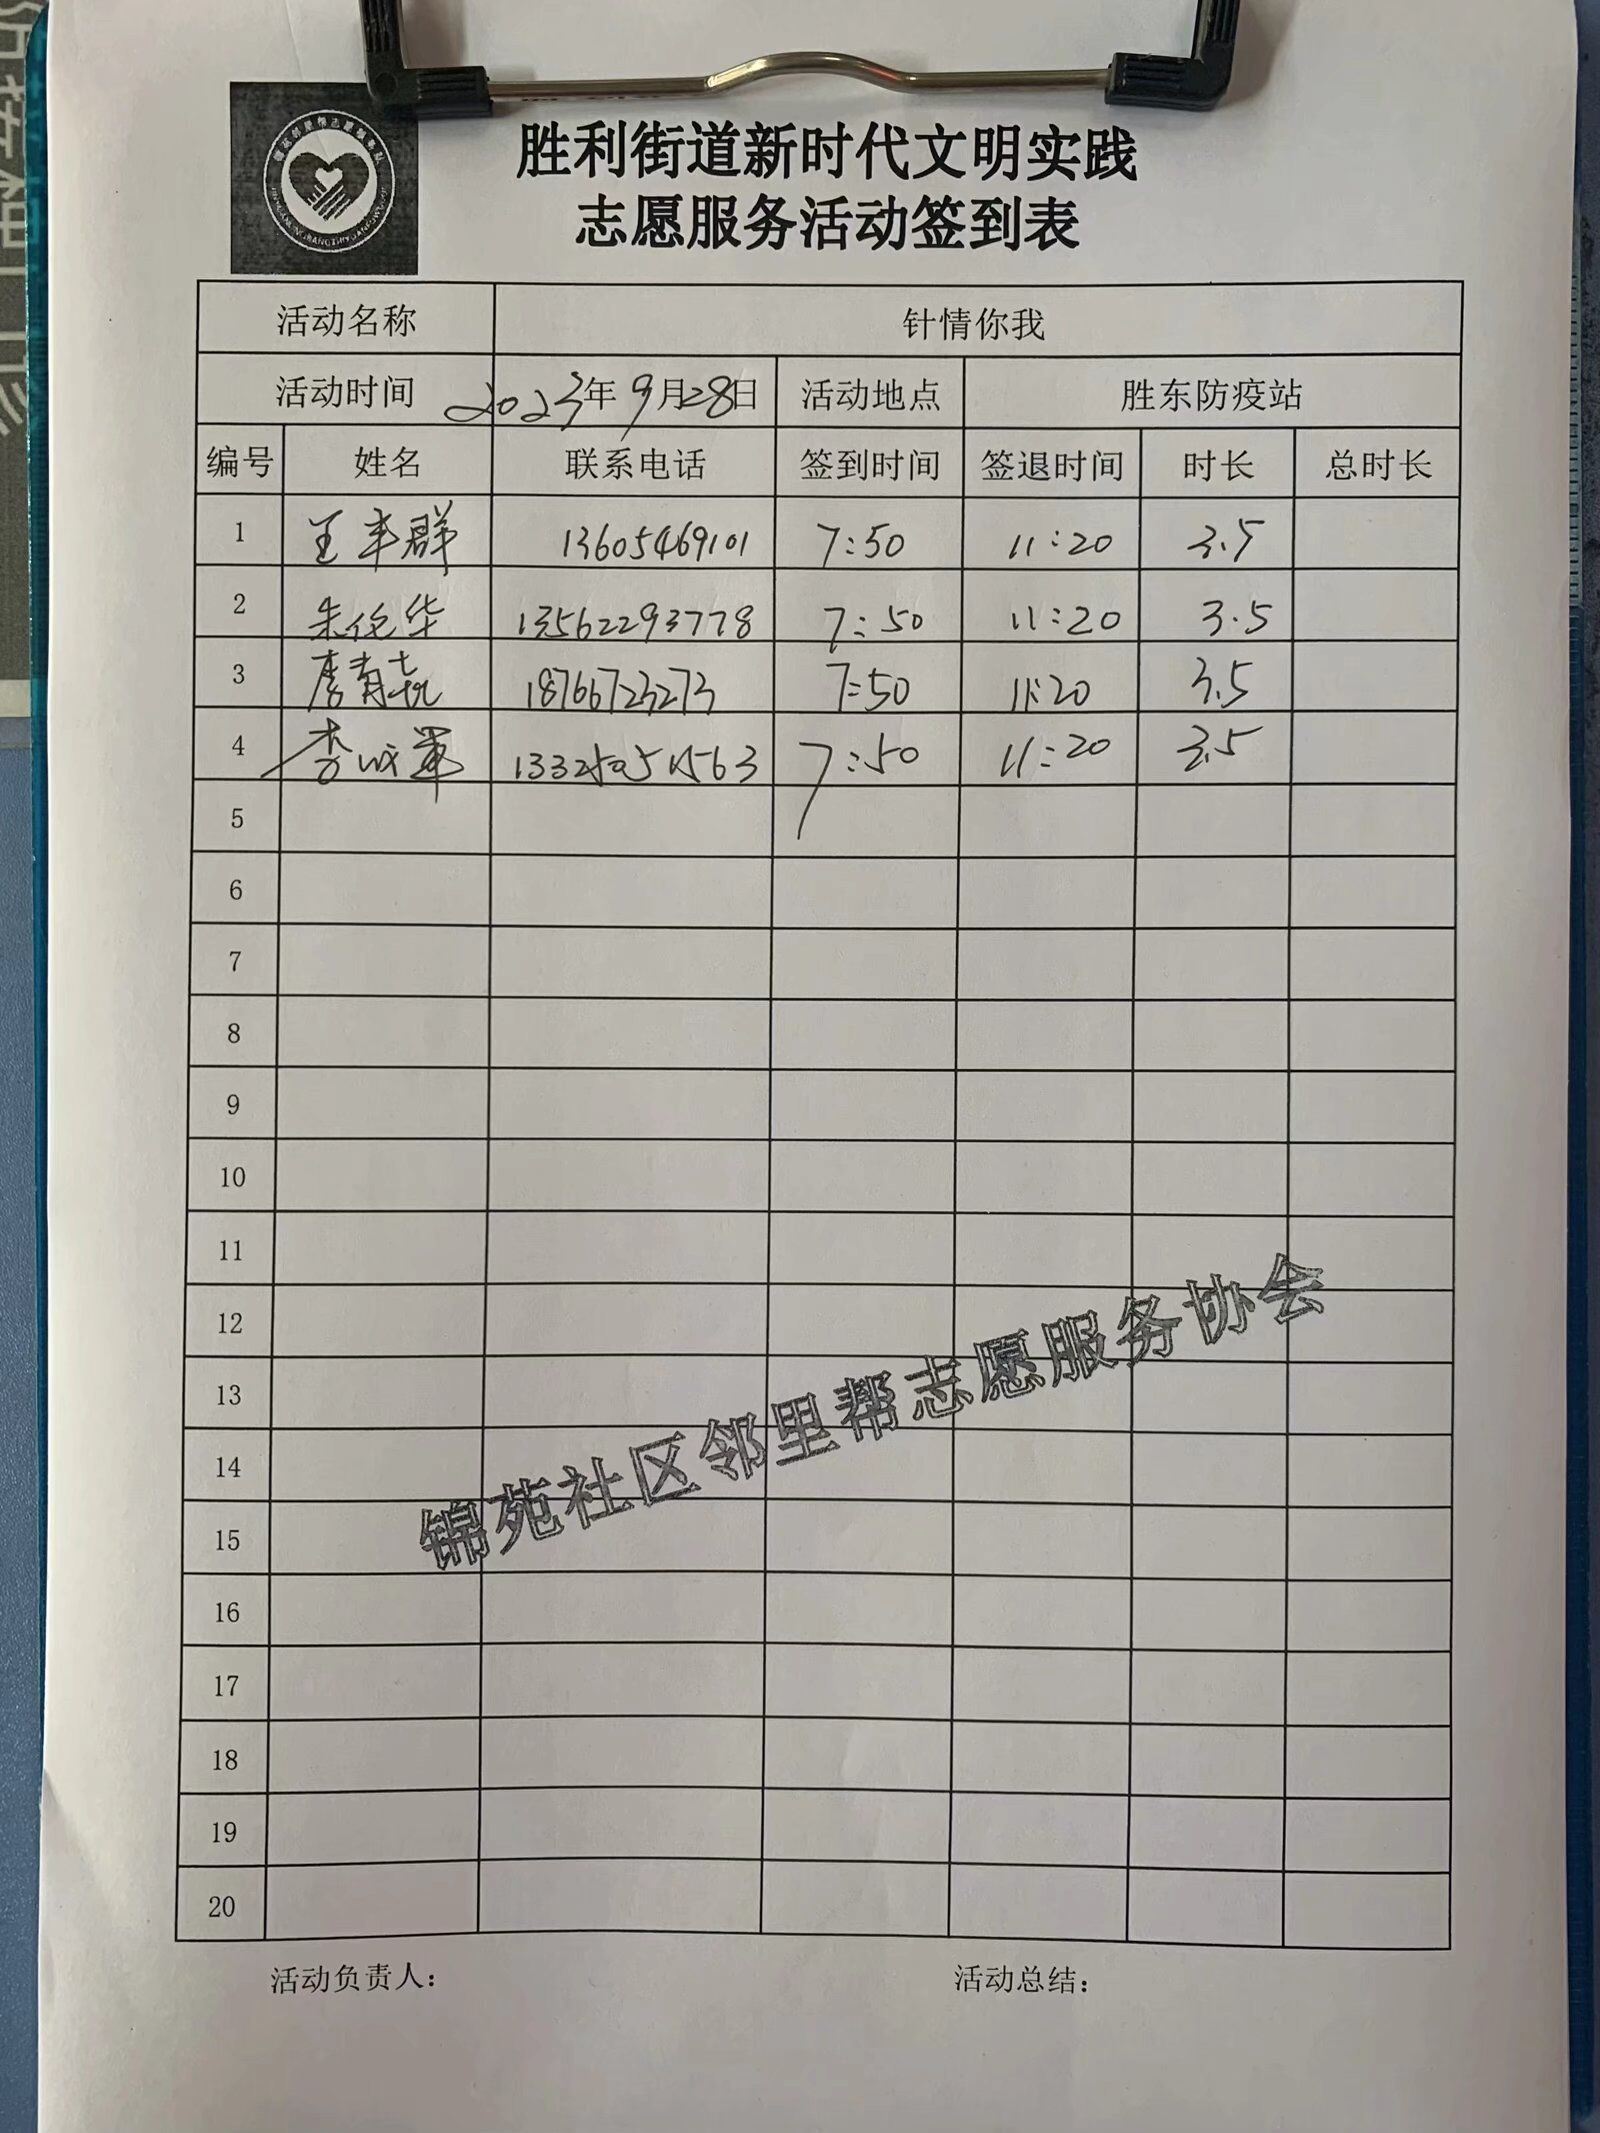 胜利街道新时代文明实践
志愿服务活动签到表
活动名称 针情你我
活动时间 2023年9月28日 活动地点 胜东防疫站
编号 姓名 联系电话 签到时间 签退时间 时长 总时长
1 王丰群 13605469101 7:50 11:20 3.5
2 朱伦华 13562293778 7:50 11:20 3.5
3 18766723273 7:50 11:20 3.5
4 李 军 7:50 11:20 3.5
5
6
7
8
9
10
11
12
13
14
15
16
17
18
19
20
锦苑社区邻里帮志愿服务协会
活动负责人： 活动总结：